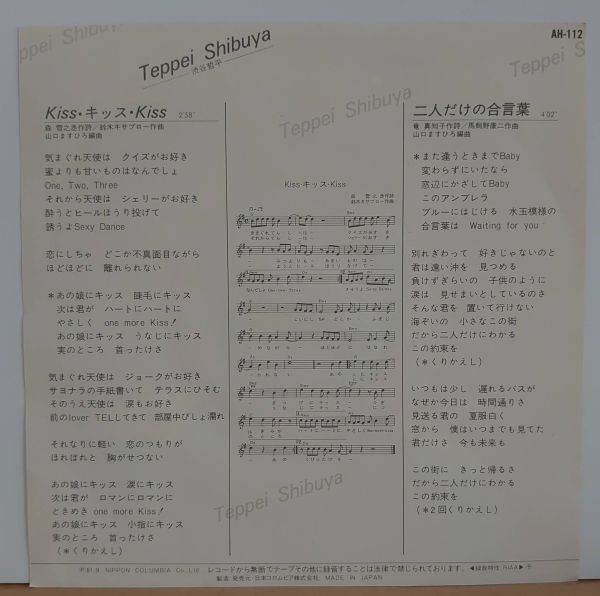 AH-112
Teppei Shibuya
Teppei Shibuya
渋谷哲平
Teppei Shibuya
Teppei Shibuya
Kiss・キッス・Kiss 2'58"
森 雪之丞作詩／鈴木キサブロー作曲
山口ますひろ編曲
気まぐれ天使は クイズがお好き
蜜よりも甘いものはなんでしょ
One, Two, Three
それから天使は シェリーがお好き
酔うとヒールほうり投げて
誘うよSexy Dance
恋にしちゃ どこか不真面目ながら
ほどほどに 離れられない
＊あの娘にキッス 睫毛にキッス
次は君が ハートにハートに
やさしく one more Kiss!
あの娘にキッス うなじにキッス
実のところ 首ったけさ
気まぐれ天使は ジョークがお好き
サヨナラの手紙書いて テラスにひそむ
そのうえ天使は 涙もお好き
前のlover TELLしてきて 部屋中びしょ濡れ
それなりに軽い 恋のつもりが
ほれぼれと 胸がせつない
あの娘にキッス 涙にキッス
次は君が ロマンにロマンに
ときめき one more Kiss!
あの娘にキッス 小指にキッス
実のところ 首ったけさ
(＊くりかえし)
Kiss・キッス・Kiss
森 雪之丞作詩
鈴木キサブロー作曲
Teppei Shibuya
二人だけの合言葉 4'02"
竜 真知子作詩／馬飼野康二作曲
山口ますひろ編曲
＊また逢うときまでBaby
変わらずにいたなら
窓辺にかざしてBaby
このアンブレラ
ブルーにはじける 水玉模様の
合言葉は Waiting for you
別れぎわって 好きじゃないのと
君は遠い沖を 見つめる
負けずぎらいの 子供のように
涙は 見せまいとしているのさ
そんな君を 置いて行けない
海ぞいの 小さなこの街
だから二人だけにわかる
この約束を
(＊くりかえし)
いつもは少し 遅れるバスが
なぜか今日は 時間通りさ
見送る君の 夏服白く
窓から 僕はいつまでも見てた
君だけさ 今も未来も
この街に きっと帰るさ
だから二人だけにわかる
この約束を
(＊2回くりかえし)
Ⓟ'81.9 NIPPON COLUMBIA Co., Ltd. レコードから無断でテープその他に録音することは法律で禁じられております。◀録音特性 RIAA▶
製造 発売元・日本コロムビア株式会社 MADE IN JAPAN